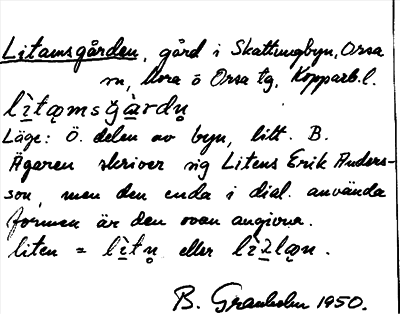 Litamsgården, gård i Skattungbyn, Orsa
sn, Mora o Orsa tg, Kopparb. l.
lìtąmsgàrdṇ
Läge: Ö. delen av byn, litt. B.
Ägaren skriver sig Litens Erik Anders-
son, men den enda i dial. använda
formen är den ovan angivna.
liten = lìtṇ eller lìlląn.
B. Granholm 1950.